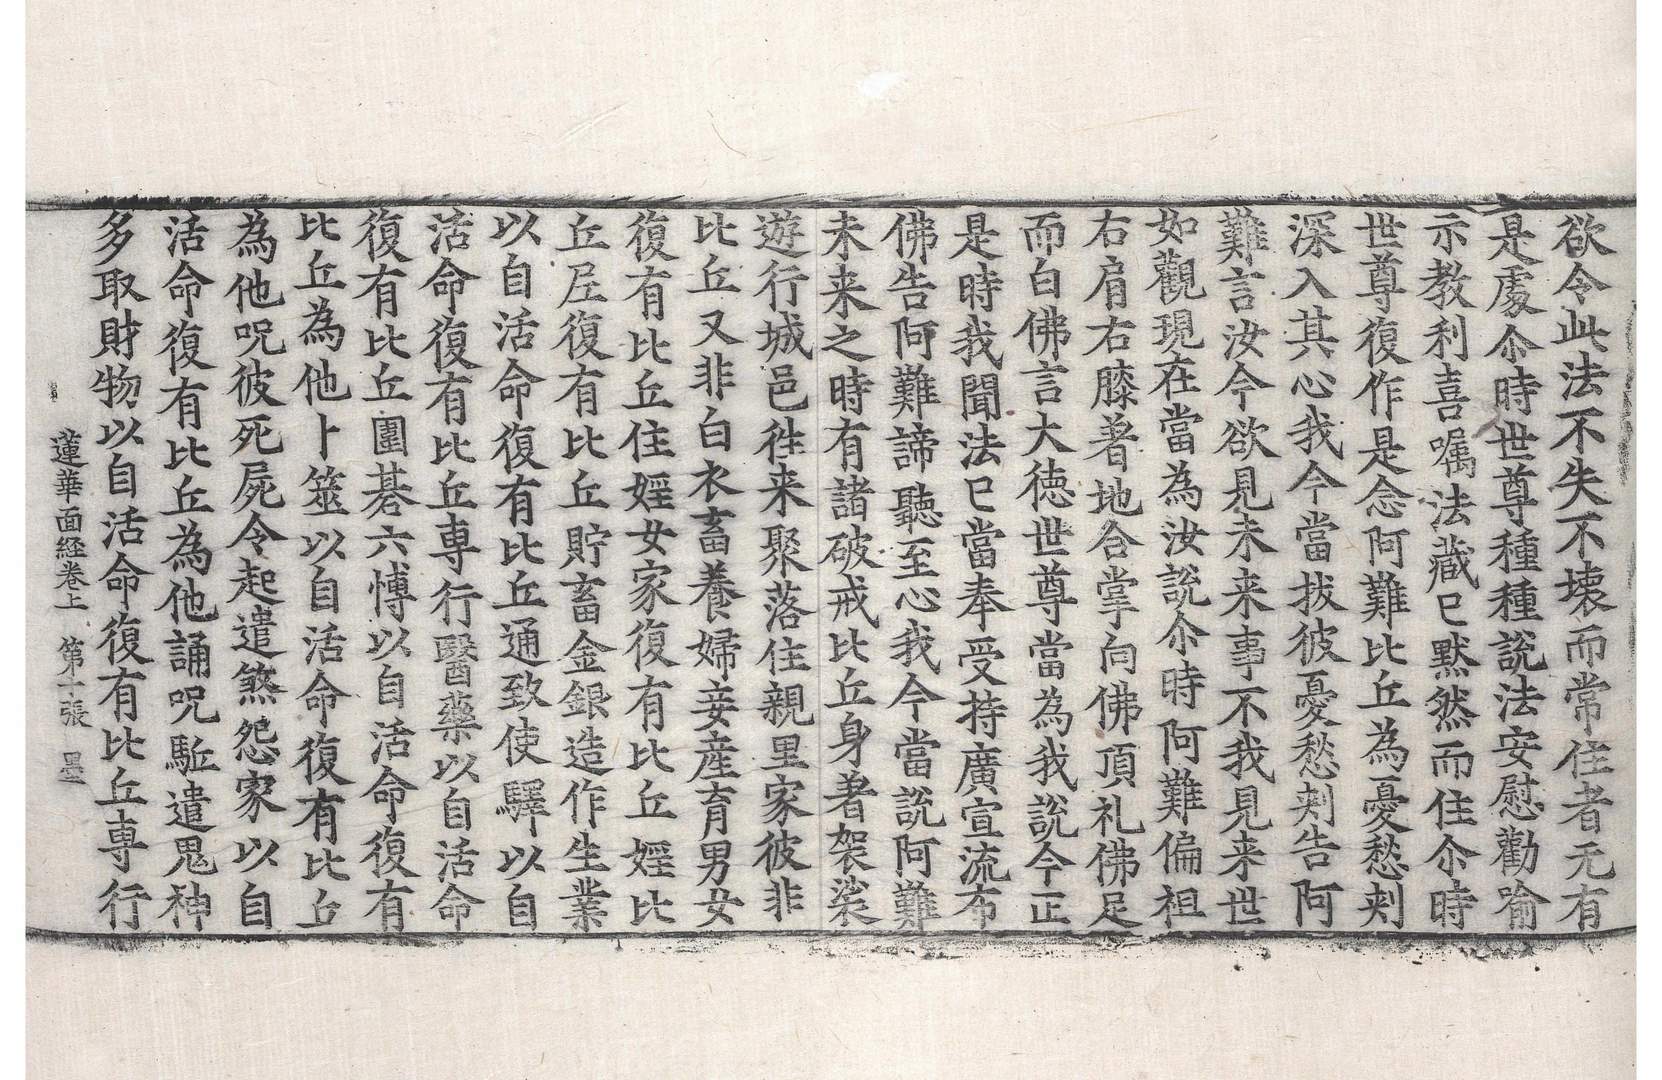 欲令此法不失不壞而常住者无有
是處尒時世尊種種說法安慰勸喻
示教利喜嘱法藏巳默然而住尒時
世尊復作是念阿難比丘為憂愁剌
深入其心我今當拔彼憂愁剌告阿
難言汝今欲見未来事不我見来世
如觀現在當為汝說尒時阿難偏袒
右肩右膝著地合掌向佛頂礼佛足
而白佛言大徳世尊當為我說今正
是時我聞法巳當奉受持廣宣流布
佛告阿難諦聽至心我今當說阿難
未来之時有諸破戒比丘身著袈裟
遊行城邑徃来聚落住親里家彼非
比丘又非白衣畜養婦妾産育男女
復有比丘住婬女家復有比丘婬比
丘𡰱復有比丘貯畜金銀造作生業
以自活命復有比丘通致使驛以自
活命復有比丘専行醫藥以自活命
復有比丘圍碁六愽以自活命復有
比丘為他卜筮以自活命復有比丘
為他呪彼死屍令起遣煞怨家以自
活命復有比丘為他誦呪駈遣鬼神
多取財物以自活命復有比丘専行
蓮華面経卷上 第十張 墨